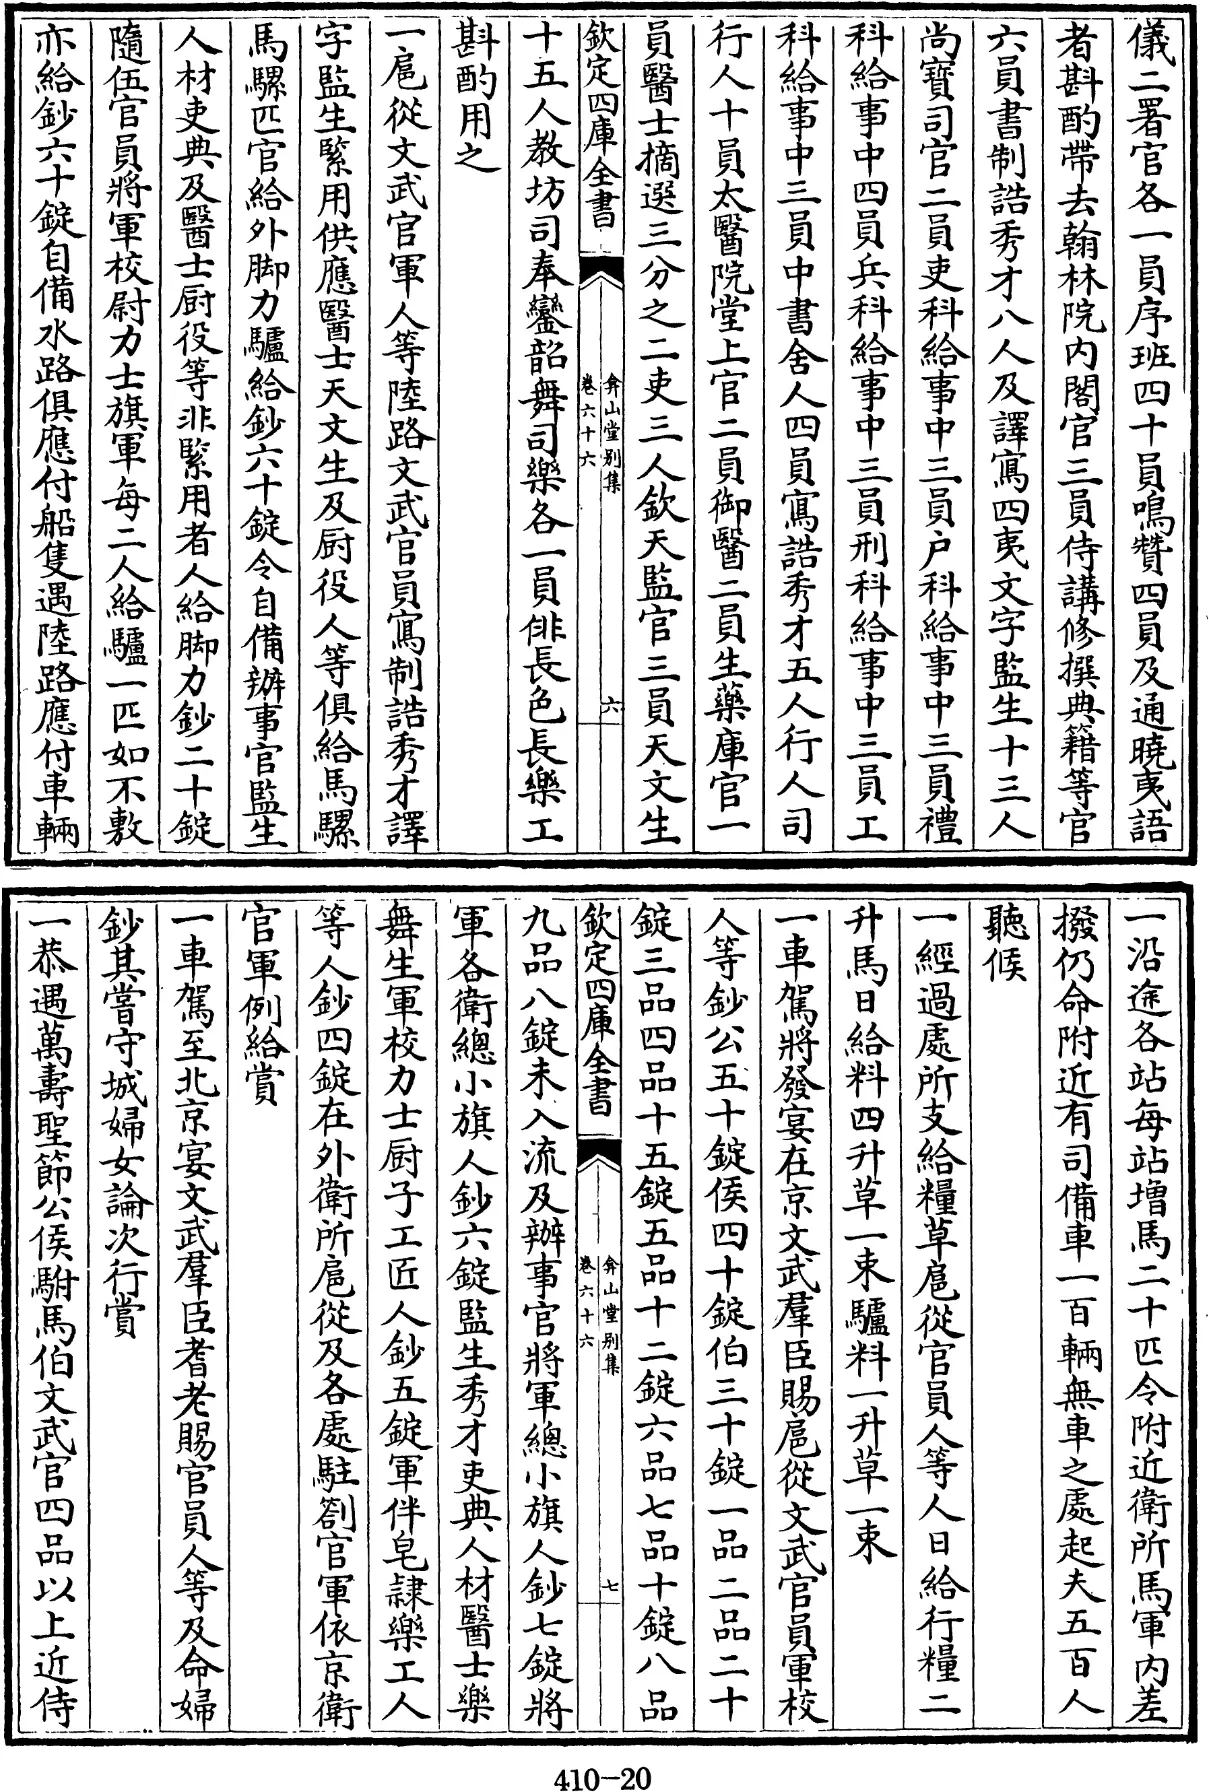 儀二署官各一員序班四十員鳴贊四員及通曉夷語
者斟酌帶去翰林院內閣官三員侍講修撰典籍等官
六員書制誥秀才八人及譯寫四夷文字監生十三人
尚寶司官二員吏科給事中三員户科給事中三員禮
科給事中四員兵科給事中三員刑科給事中三員工
科給事中三員中書舍人四員寫誥秀才五人行人司
行人十員太醫院堂上官二員御醫二員生藥庫官一
員醫士摘選三分之二吏三人欽天監官三員天文生
欽定四庫全書
弇山堂别集
卷六十六
六
十五人教坊司奉鑾韶舞司樂各一員俳長色長樂工
斟酌用之
一扈從文武官軍人等陸路文武官員寫制誥秀才譯
字監生緊用供應醫士天文生及厨役人等俱給馬騾
馬騾匹官給外脚力驢給鈔六十錠令自備辦事官監生
人材吏典及醫士厨役等非緊用者人給脚力鈔二十錠
隨伍官員將軍校尉力士旗軍每二人給驢一匹如不敷
亦給鈔六十錠自備水路俱應付船隻遇陸路應付車輛
一沿途各站每站增馬二十匹令附近衛所馬軍內差
撥仍命附近有司備車一百輛無車之處起夫五百人
聽候
一經過處所支給糧草扈從官員人等人日給行糧二
升馬日給料四升草一束驢料一升草一束
一車駕將發宴在京文武羣臣賜扈從文武官員軍校
人等鈔公五十錠侯四十錠伯三十錠一品二品二十
錠三品四品十五錠五品十二錠六品七品十錠八品
欽定四庫全書
弇山堂别集
卷六十六
七
九品八錠未入流及辦事官將軍總小旗人鈔七錠將
軍各衛總小旗人鈔六錠監生秀才吏典人材醫士樂
舞生軍校力士厨子工匠人鈔五錠軍伴皂隸樂工人
等人鈔四錠在外衛所扈從及各處駐劄官軍依京衛
官軍例給賞
一車駕至北京宴文武羣臣耆老賜官員人等及命婦
鈔其嘗守城婦女論次行賞
一恭遇萬壽聖節公侯駙馬伯文武官四品以上近侍
410-20